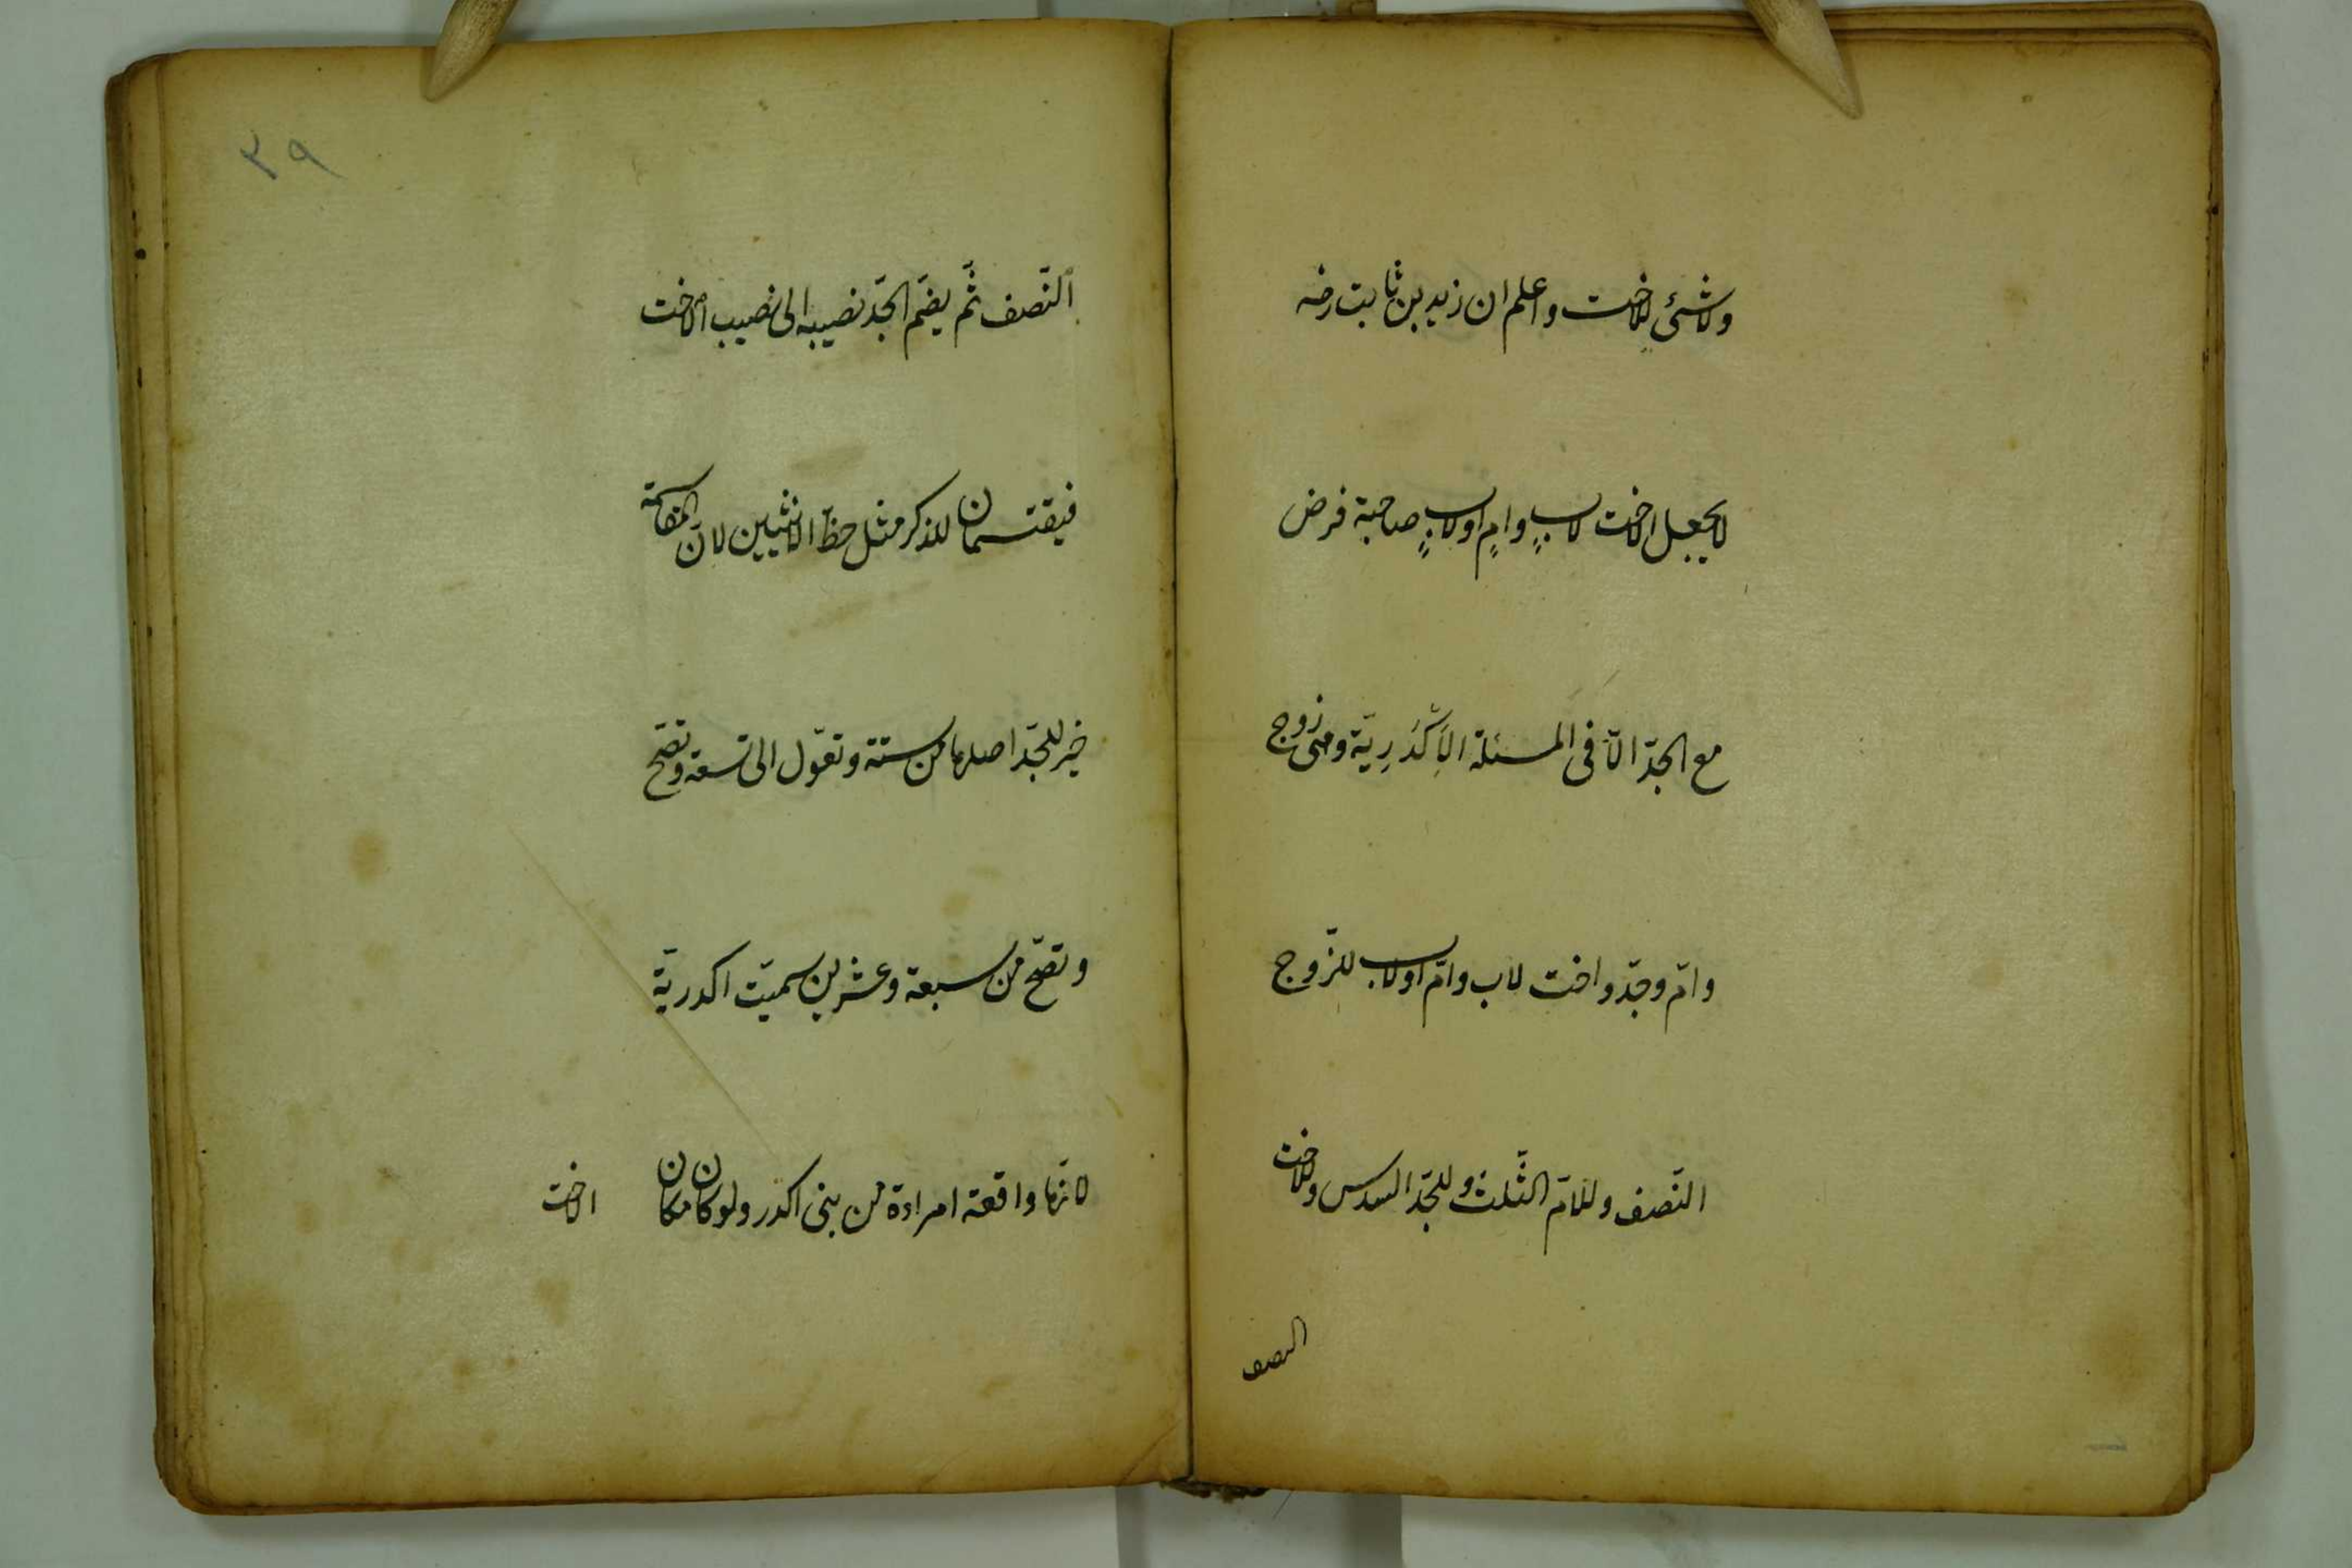 ولا شئ للاخت واعلم ان زيد بن ثابت رضہ
لا يجعل الاخت لابٍ وامٍ اولابٍ صاحبة فرض
مع الجدّ الاّ فى المسئلة الاَكْدَرِيّة وهى زوج
وامّ وجدّ واخت لاب وامّ اولاب للزّوج
النّصف وللامّ الثّلث وللجدّ السدس وللاخت
النصف
٢٩
النّصف ثمّ يضمّ الجدّ نصيبه الى نصيب الاخت
فيقتسمان للذكر مثل حظّ الانثيين لانّ المقاسمة
خير للجدّ اصلها من ستة وتعوّل الى تسعة وتصّح
وتصّح من سبعة وعشرين سميّت اكدريّة
لانّها واقعة امراءة من بنى اكدر ولو كان مكان
الاخت